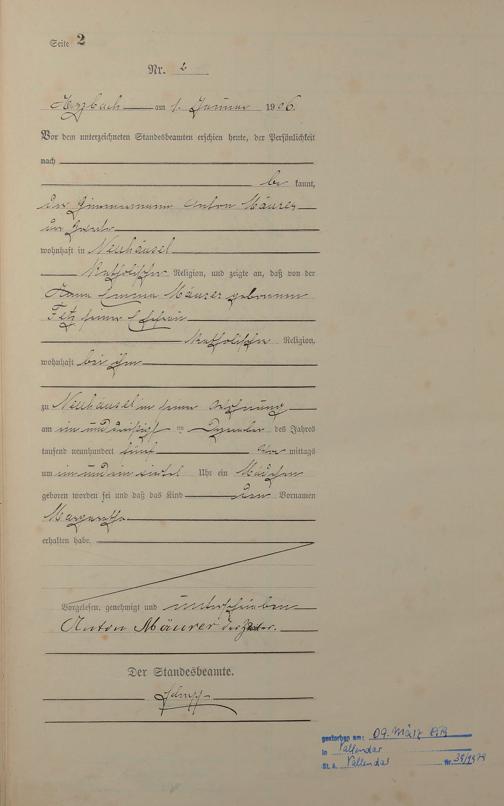 Seite 2
Nr. 2
am 1. Januar 1906.
Vor dem unterzeichneten Standesbeamten erschien heute, der Persönlichkeit
nach
be kannt,
der Zimmermann Anton Mäurer
wohnhaft in Neuhäusel
katholischer Religion, und zeigte an, daß von der
Anna Emma Mäurer geborenen
seiner Ehefrau
katholischer Religion,
wohnhaft bei ihm
zu Neuhäusel in seiner Wohnung
am ein und dreißigsten Dezember des Jahres
tausend neunhundert fünf mittags
um ein und ein viertel Uhr ein Mädchen
geboren worden sei und daß das Kind den Vornamen
Margaretha
erhalten habe.
Vorgelesen, genehmigt und unterschrieben
Anton Mäurer der Vater.
Der Standesbeamte.
gestorben am: 09. März
in Vallendar
St. A. Vallendar Nr. 39/1978